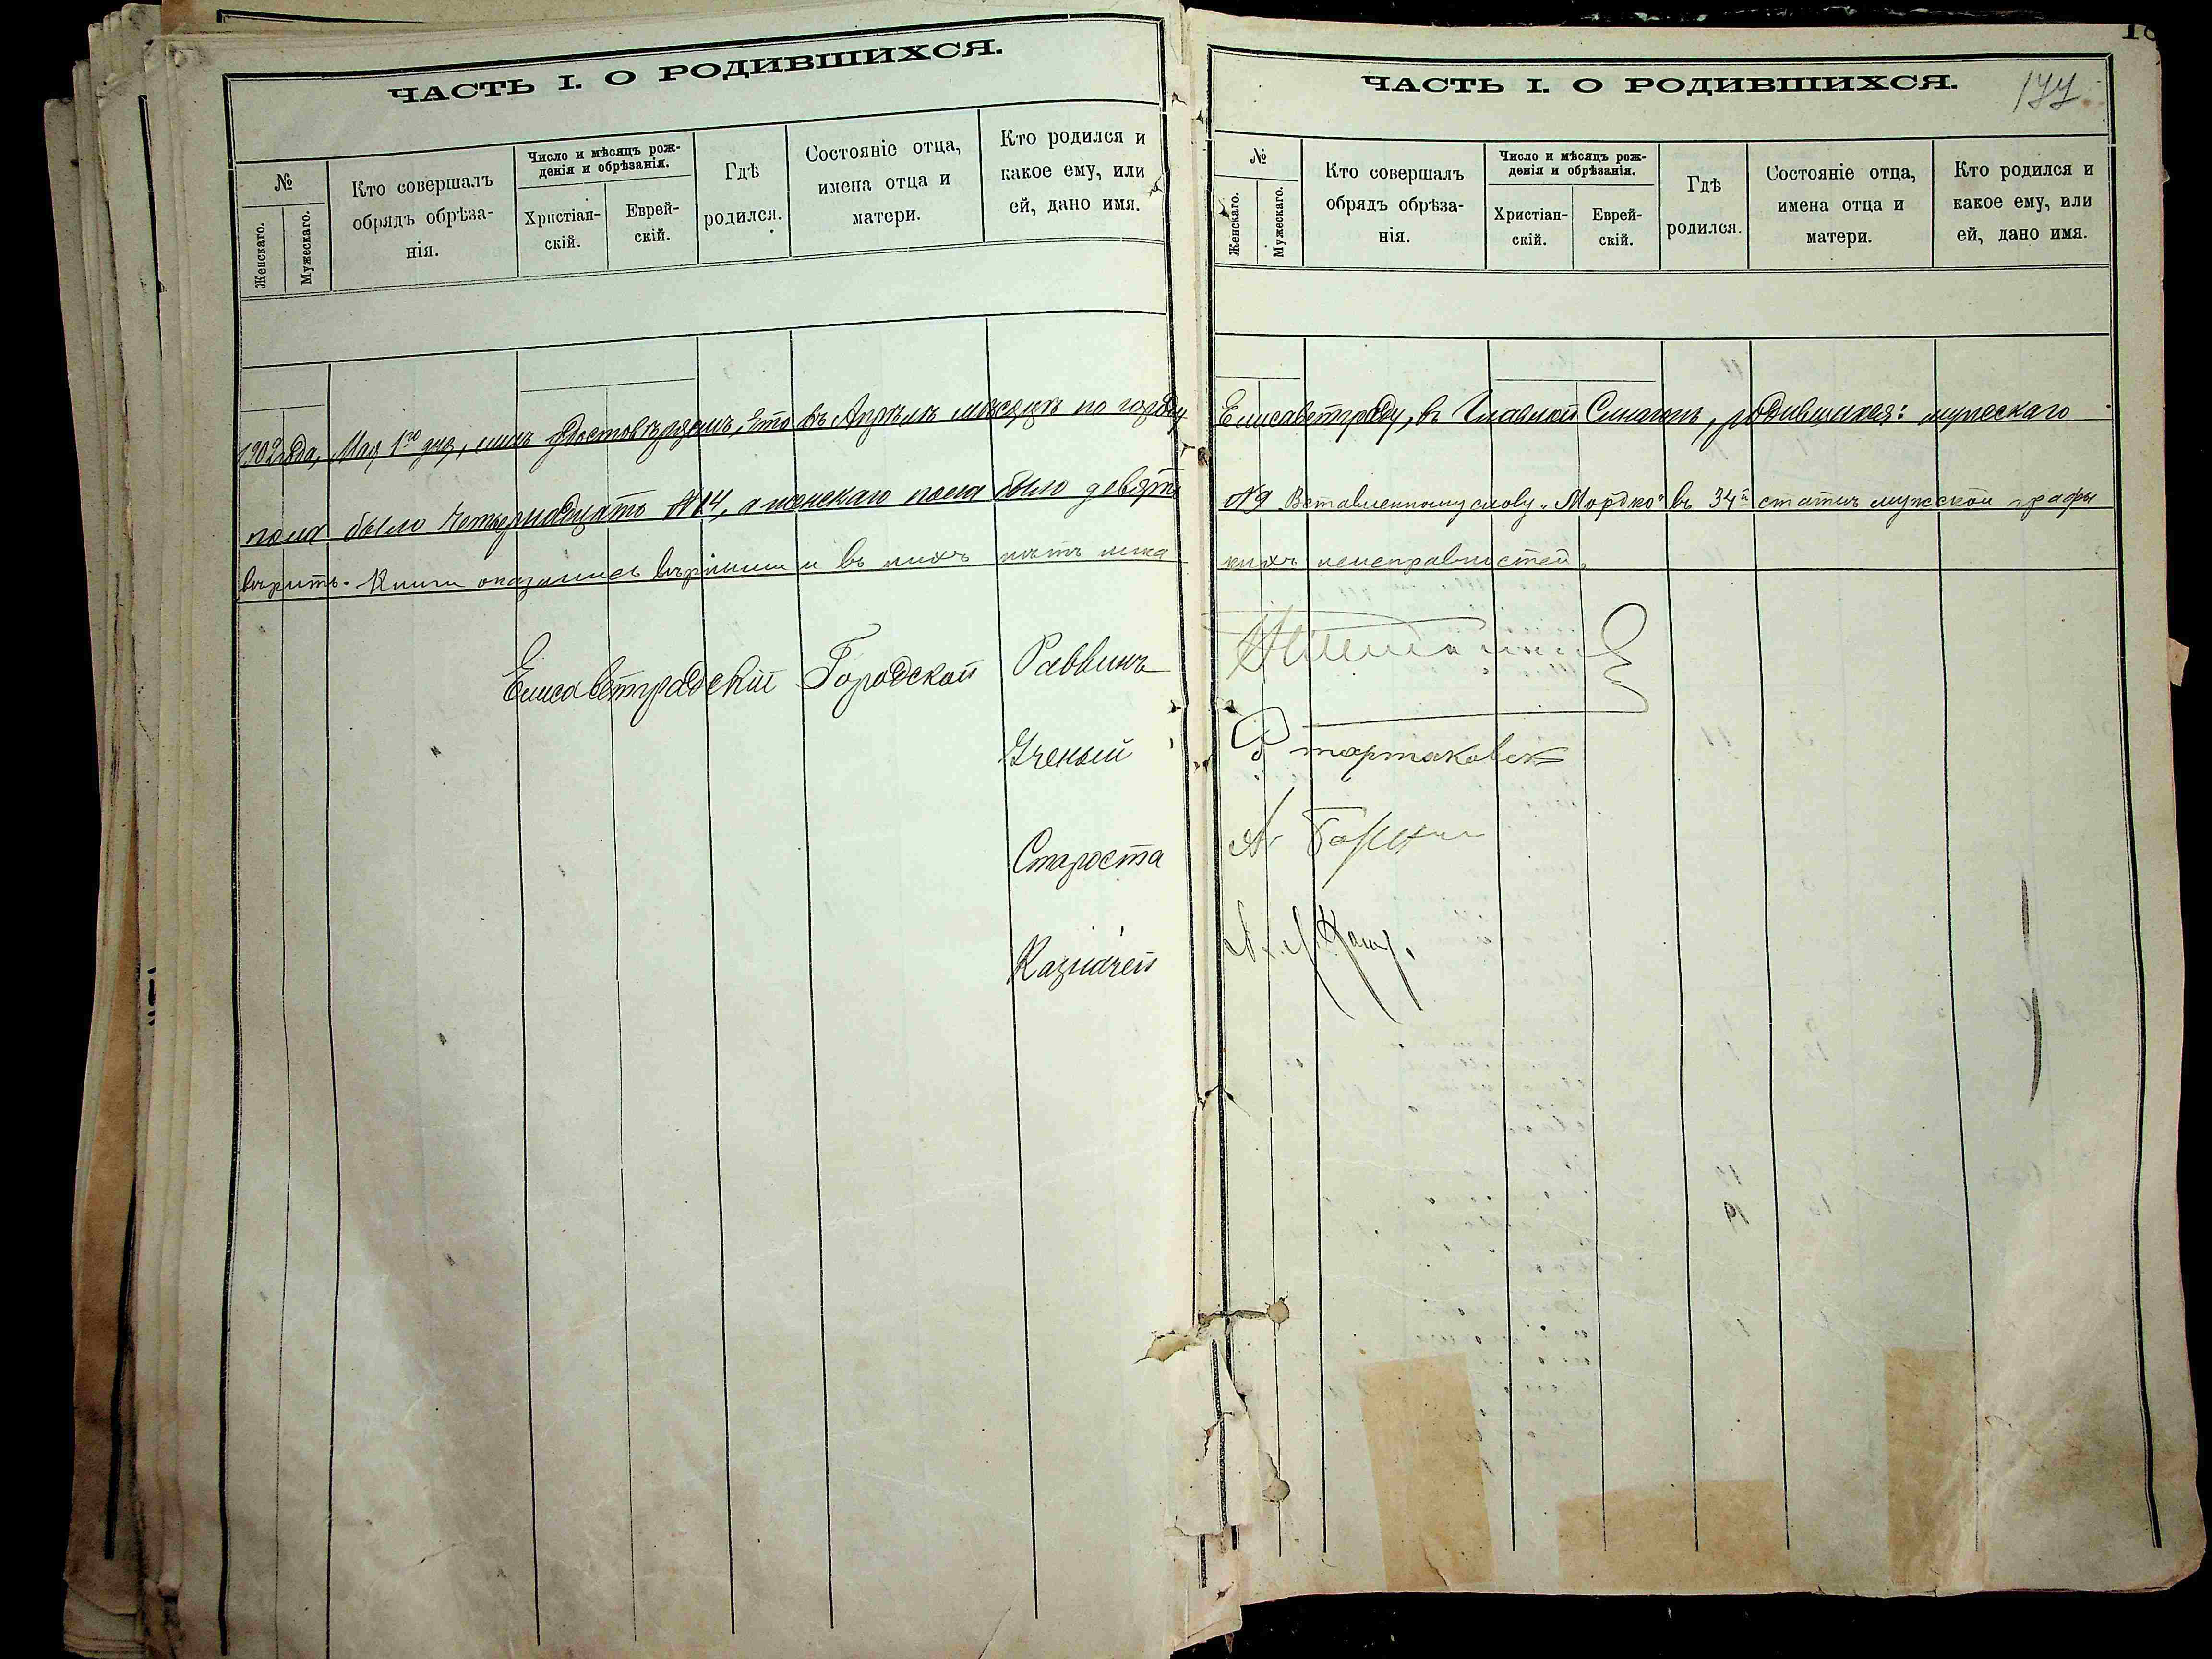 ЧАСТЬ I. О РОДИВШИХСЯ.
№
Женскаго.
Мужескаго.
Кто совершалъ
обрядъ обрѣза-
нія.
Число и мѣсяцъ рож-
денія и обрѣзанія.
Христіан-
скій.
Еврей-
скій.
Гдѣ
родился.
Состояніе отца,
имена отца и
матери.
Кто родился и
какое ему, или
ей, дано имя.
1902 года, Мая 1го дня, симъ удостовѣряемъ, что въ Апрѣлѣ мѣсяцѣ по городу
пола было четырнадцать №14, а женскаго пола было девять
вѣрить. Книги оказались вѣрными и въ нихъ нѣтъ ника
Елисаветградскій Городской Раввинъ
Ученый
Староста
Казначей
ЧАСТЬ I. О РОДИВШИХСЯ.
177
№
Женскаго.
Мужескаго.
Кто совершалъ
обрядъ обрѣза-
нія.
Число и мѣсяцъ рож-
денія и обрѣзанія.
Христіан-
скій.
Еврей-
скій.
Гдѣ
родился.
Состояніе отца,
имена отца и
матери.
Кто родился и
какое ему, или
ей, дано имя.
Елисаветграду, въ Главной Синагогѣ, родившихся: мужескаго
№9 Вставленному слову „Мордко" въ 34й статьѣ мужской графы
кихъ неисправностей.
тартаковск
А.